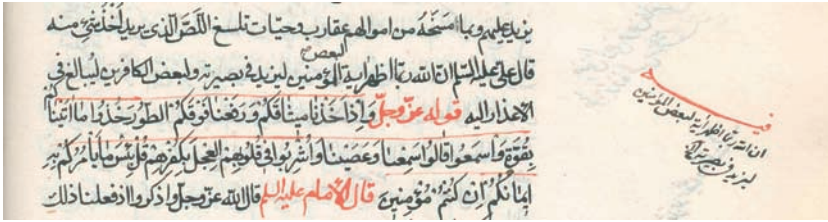 يزيد عليهم وبما مسخه من اموالهم عقارب وحيات تلسع اللص الذى يريد اخذ شئ منه
قال على عليه السلم ان الله ربما اظهر اية لبعض المؤمنين ليزيد فى بصيرته ولبعض الكافرين ليبالغ فى
الاعذار اليه قوله عز وجل واذ اخذنا ميثاقكم ورفعنا فوقكم الطور خذوا ما اتيناكم
بقوة واسمعوا قالوا سمعنا وعصينا واشربوا فى قلوبهم العجل بكفرهم قل بئسما يأمركم به
ايمانكم ان كنتم مؤمنين قال الامام عليه السلم قال الله عز وجل واذكروا اذ فعلنا ذلك
فيه
ان الله ربما اظهر اية لبعض المؤمنين
ليزيد فى بصيرته